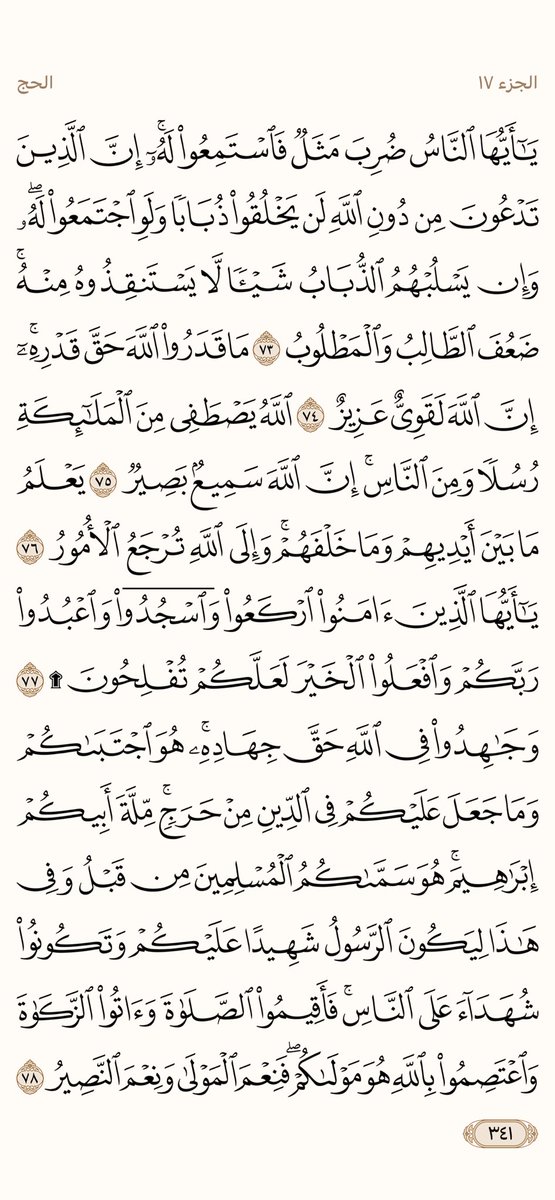 الجزء ١٧
الحج
يَٰٓأَيُّهَا ٱلنَّاسُ ضُرِبَ مَثَلٌ فَٱسْتَمِعُوا۟ لَهُۥٓ ۚ إِنَّ ٱلَّذِينَ
تَدْعُونَ مِن دُونِ ٱللَّهِ لَن يَخْلُقُوا۟ ذُبَابًا وَلَوِ ٱجْتَمَعُوا۟ لَهُۥ ۖ
وَإِن يَسْلُبْهُمُ ٱلذُّبَابُ شَيْـًٔا لَّا يَسْتَنقِذُوهُ مِنْهُ ۚ
ضَعُفَ ٱلطَّالِبُ وَٱلْمَطْلُوبُ ٧٣ مَا قَدَرُوا۟ ٱللَّهَ حَقَّ قَدْرِهِۦٓ ۚ
إِنَّ ٱللَّهَ لَقَوِىٌّ عَزِيزٌ ٧٤ ٱللَّهُ يَصْطَفِى مِنَ ٱلْمَلَٰٓئِكَةِ
رُسُلًا وَمِنَ ٱلنَّاسِ ۚ إِنَّ ٱللَّهَ سَمِيعٌۢ بَصِيرٌ ٧٥ يَعْلَمُ
مَا بَيْنَ أَيْدِيهِمْ وَمَا خَلْفَهُمْ ۗ وَإِلَى ٱللَّهِ تُرْجَعُ ٱلْأُمُورُ ٧٦
يَٰٓأَيُّهَا ٱلَّذِينَ ءَامَنُوا۟ ٱرْكَعُوا۟ وَٱسْجُدُوا۟ وَٱعْبُدُوا۟
رَبَّكُمْ وَٱفْعَلُوا۟ ٱلْخَيْرَ لَعَلَّكُمْ تُفْلِحُونَ ۩ ٧٧
وَجَٰهِدُوا۟ فِى ٱللَّهِ حَقَّ جِهَادِهِۦ ۚ هُوَ ٱجْتَبَىٰكُمْ
وَمَا جَعَلَ عَلَيْكُمْ فِى ٱلدِّينِ مِنْ حَرَجٍ ۚ مِّلَّةَ أَبِيكُمْ
إِبْرَٰهِيمَ ۚ هُوَ سَمَّىٰكُمُ ٱلْمُسْلِمِينَ مِن قَبْلُ وَفِى
هَٰذَا لِيَكُونَ ٱلرَّسُولُ شَهِيدًا عَلَيْكُمْ وَتَكُونُوا۟
شُهَدَآءَ عَلَى ٱلنَّاسِ ۚ فَأَقِيمُوا۟ ٱلصَّلَوٰةَ وَءَاتُوا۟ ٱلزَّكَوٰةَ
وَٱعْتَصِمُوا۟ بِٱللَّهِ هُوَ مَوْلَىٰكُمْ ۖ فَنِعْمَ ٱلْمَوْلَىٰ وَنِعْمَ ٱلنَّصِيرُ ٧٨
٣٤١